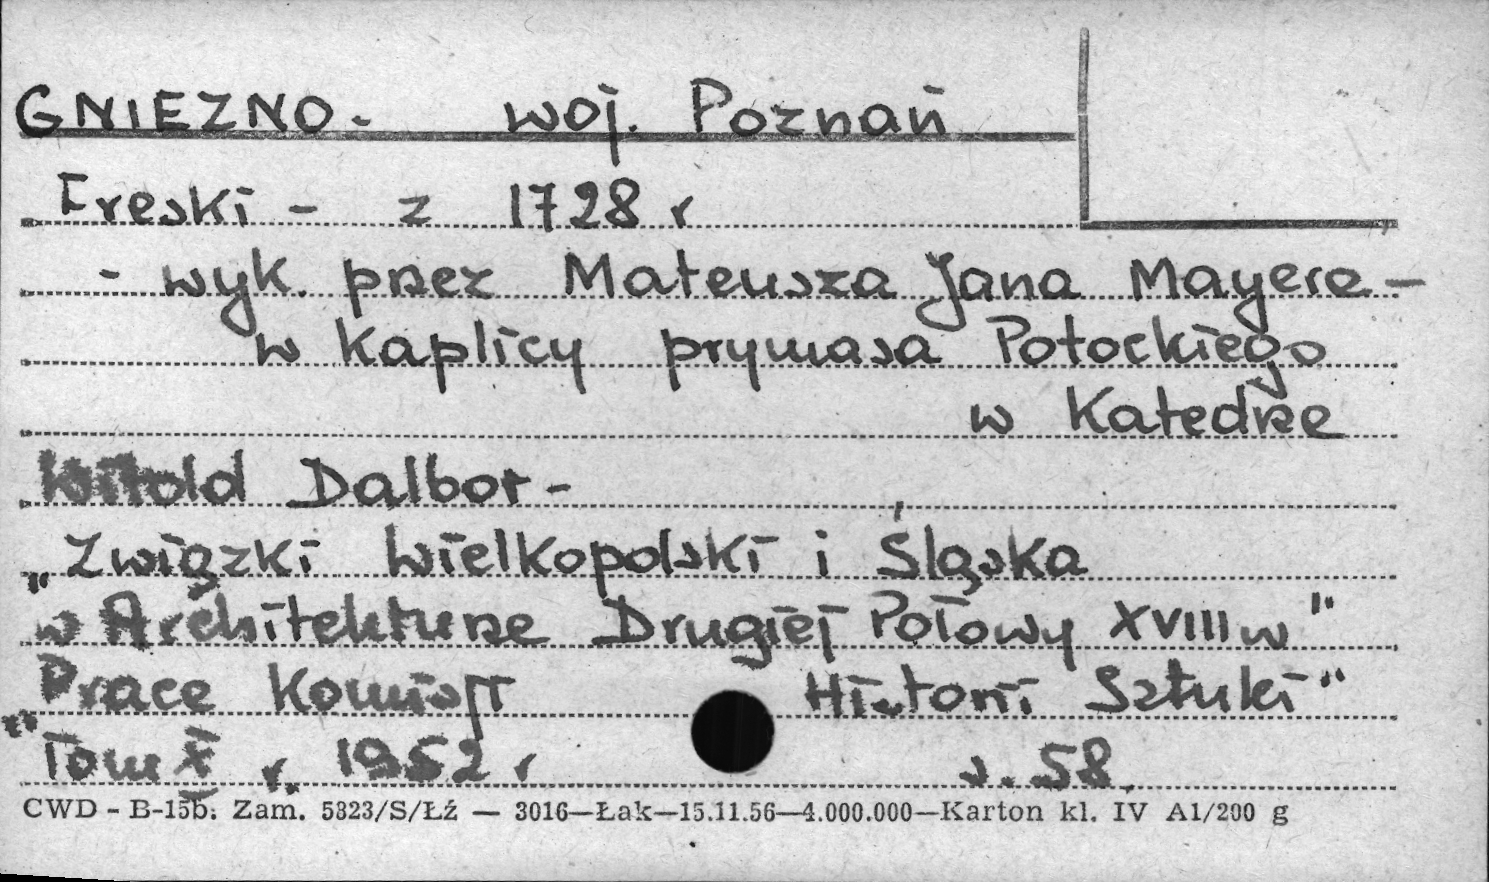 GNIEZNO - woj. Poznań
Freski - z 1728 r
- wyk. przez Mateusza Jana Mayera -
w Kaplicy prymasa Potockiego
w Katedrze
Witold Dalbor -
"Związki Wielkopolski i Śląska
w Architekturze Drugiej Połowy XVIII w"
"Prace Komisji Historii Sztuki"
Tom X r. 1952 r s. 58.
CWD - B-15b. Zam. 5323/S/Łź — 3016—Łak—15.11.56—4.000.000—Karton kl. IV A1/200 g